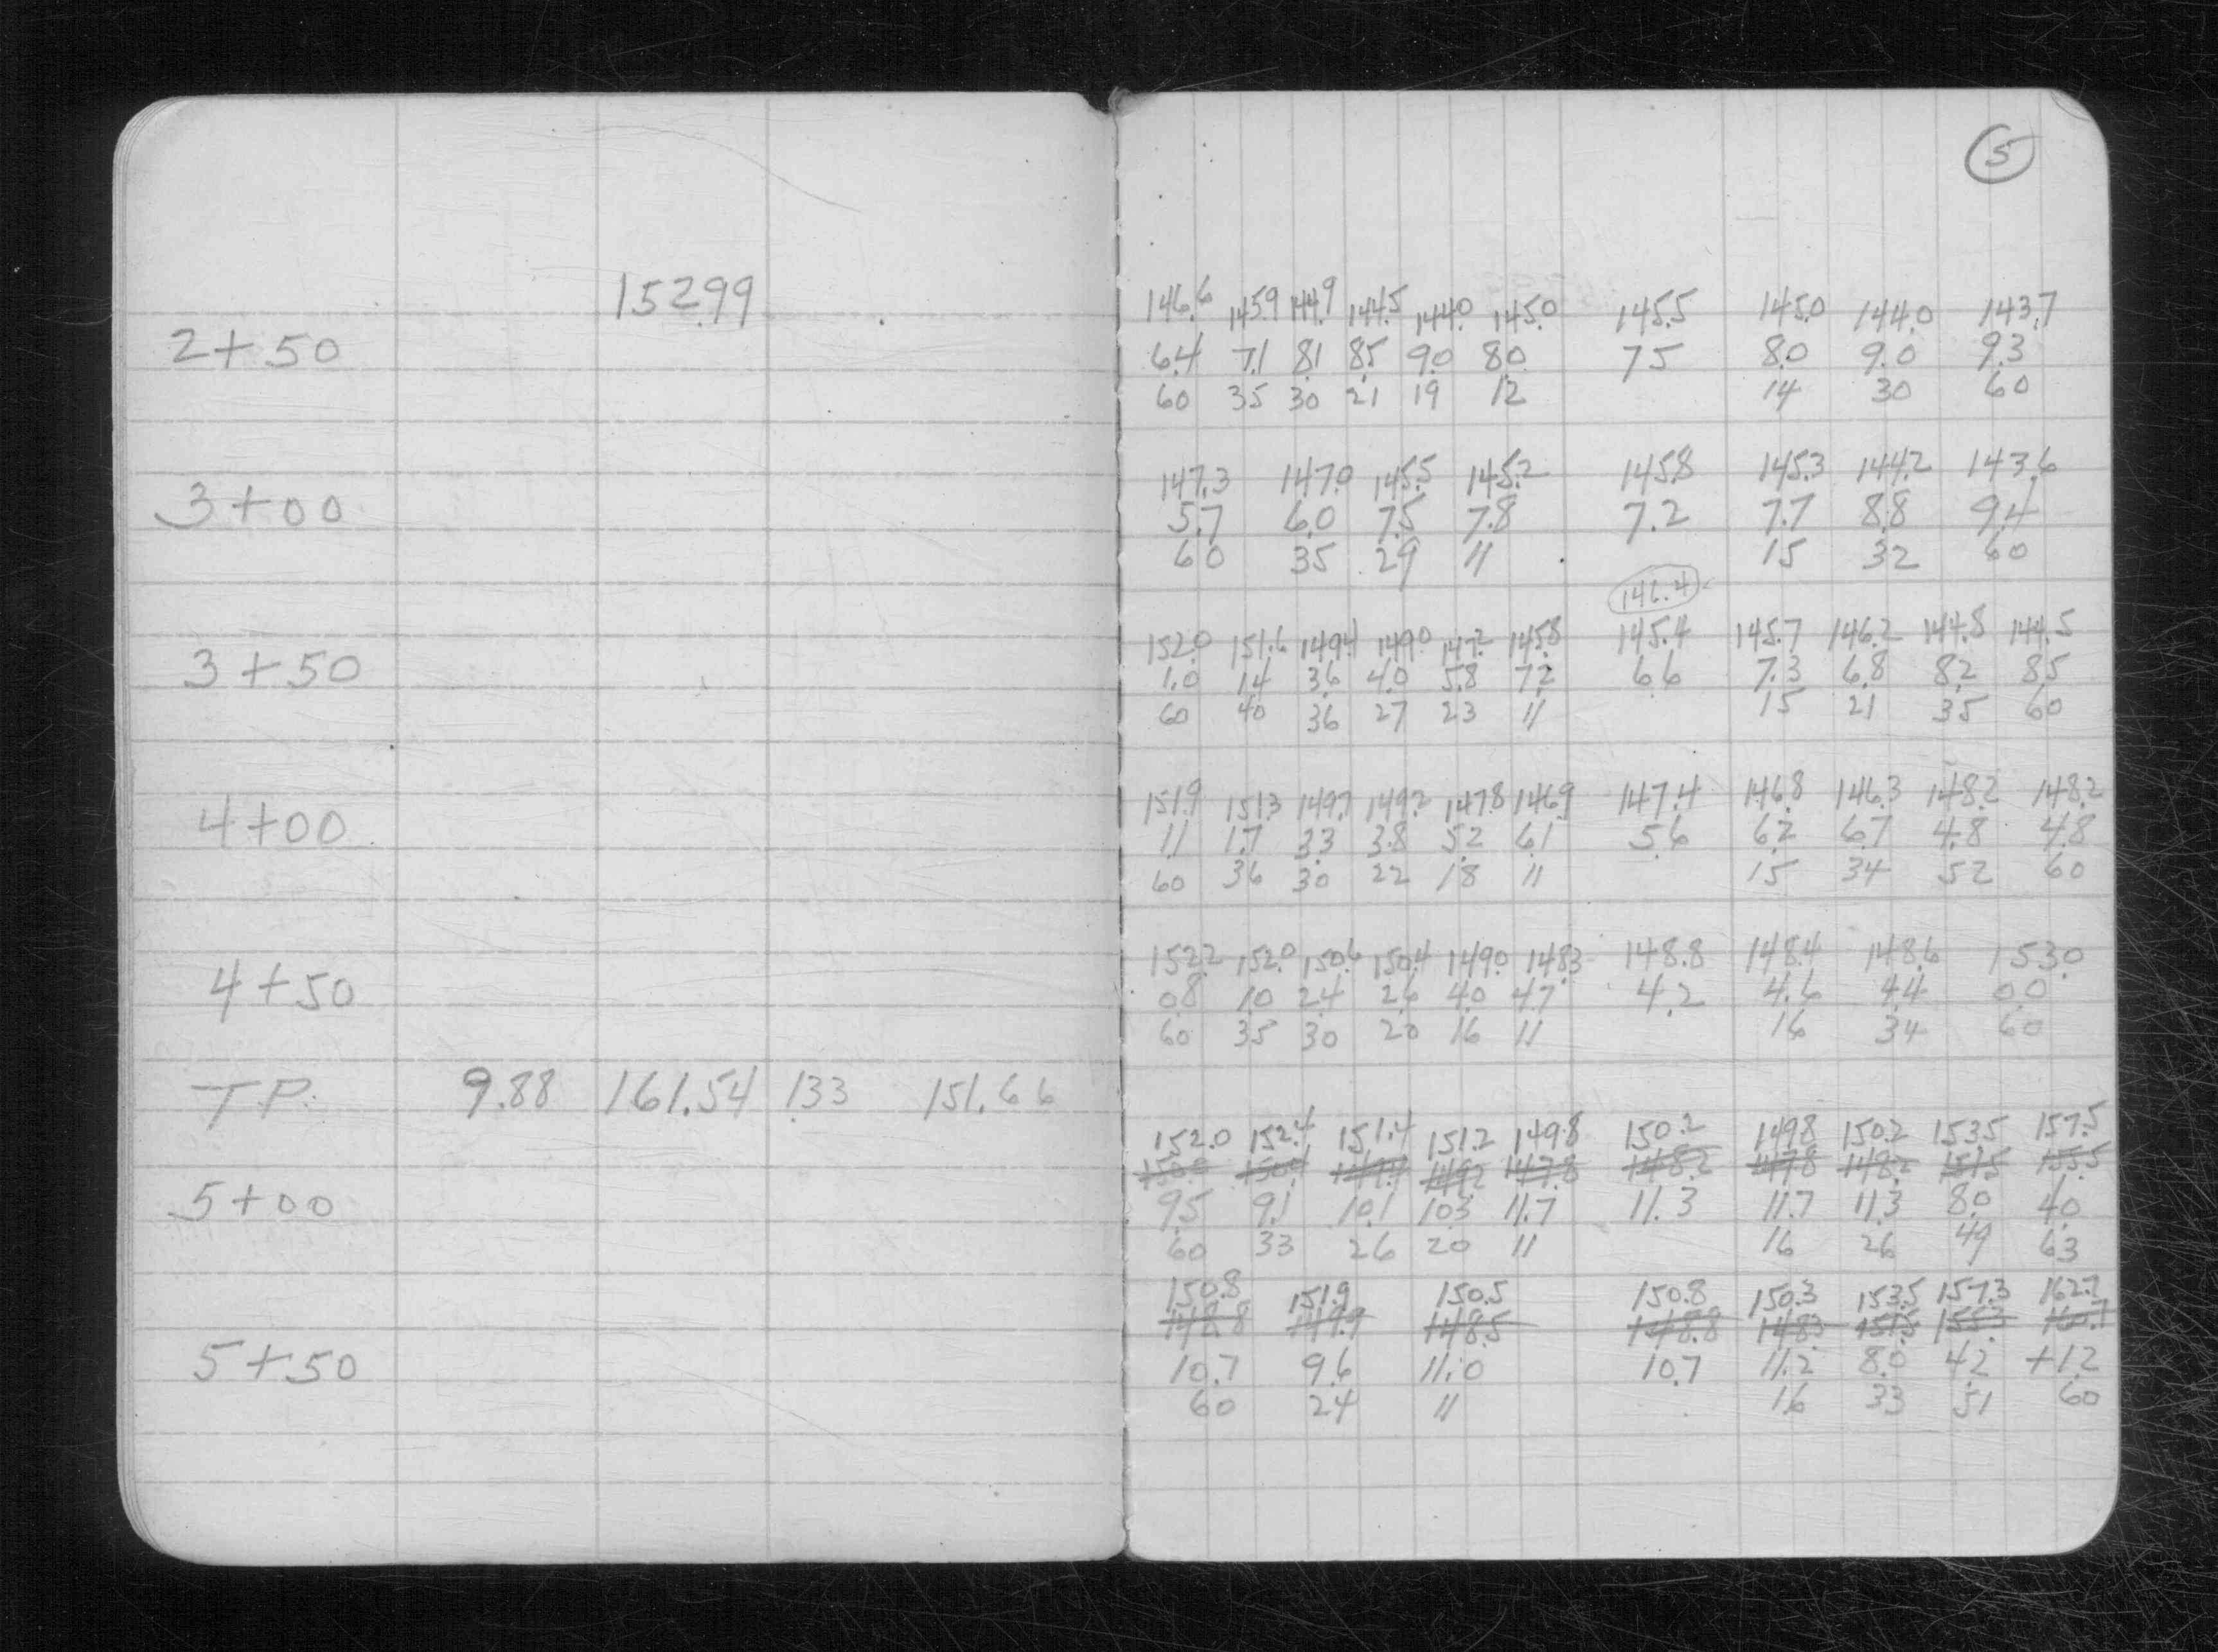 5
152.99
146.6 145.9 144.9 144.5 144.0 145.0 145.5 145.0 144.0 143.7
2+50 6.4 7.1 8.1 8.5 9.0 8.0 7.5 8.0 9.0 9.3
60 35 30 21 19 12 14 30 60
147.3 147.0 145.5 145.2 145.8 145.3 144.2 143.6
3+00 5.7 6.0 7.5 7.8 7.2 7.7 8.8 9.4
60 35 29 11 15 32 60
146.4
152.0 151.6 149.4 149.0 147.2 145.8 145.4 145.7 146.2 144.8 144.5
3+50 1.0 1.4 3.6 4.0 5.8 7.2 6.6 7.3 6.8 8.2 8.5
60 40 36 27 23 11 15 21 35 60
151.9 151.3 149.7 149.2 147.8 146.9 147.4 146.8 146.3 148.2 148.2
4+00 1.1 1.7 3.3 3.8 5.2 6.1 5.6 6.2 6.7 4.8 4.8
60 36 30 22 18 11 15 34 52 60
152.2 152.0 150.6 150.4 149.0 148.3 148.8 148.4 148.6 153.0
4+50 0.8 1.0 2.4 2.6 4.0 4.7 4.2 4.6 4.4 0.0
60 35 30 20 16 11 16 34 60
T.P. 9.88 161.54 1.33 151.66
152.0 152.4 151.4 151.2 149.8 150.2 149.8 150.2 153.5 157.5
150.0 150.4 149.4 149.2 147.8 148.2 147.8 148.2 151.5 155.5
5+00 9.5 9.1 10.1 10.3 11.7 11.3 11.7 11.3 8.0 4.0
60 33 26 20 11 16 26 49 63
150.8 151.9 150.5 150.8 150.3 153.5 157.3 162.7
148.8 149.9 148.5 148.8 148.3 151.5 155.3 160.7
5+50 10.7 9.6 11.0 10.7 11.2 8.0 4.2 +1.2
60 24 11 16 33 51 60